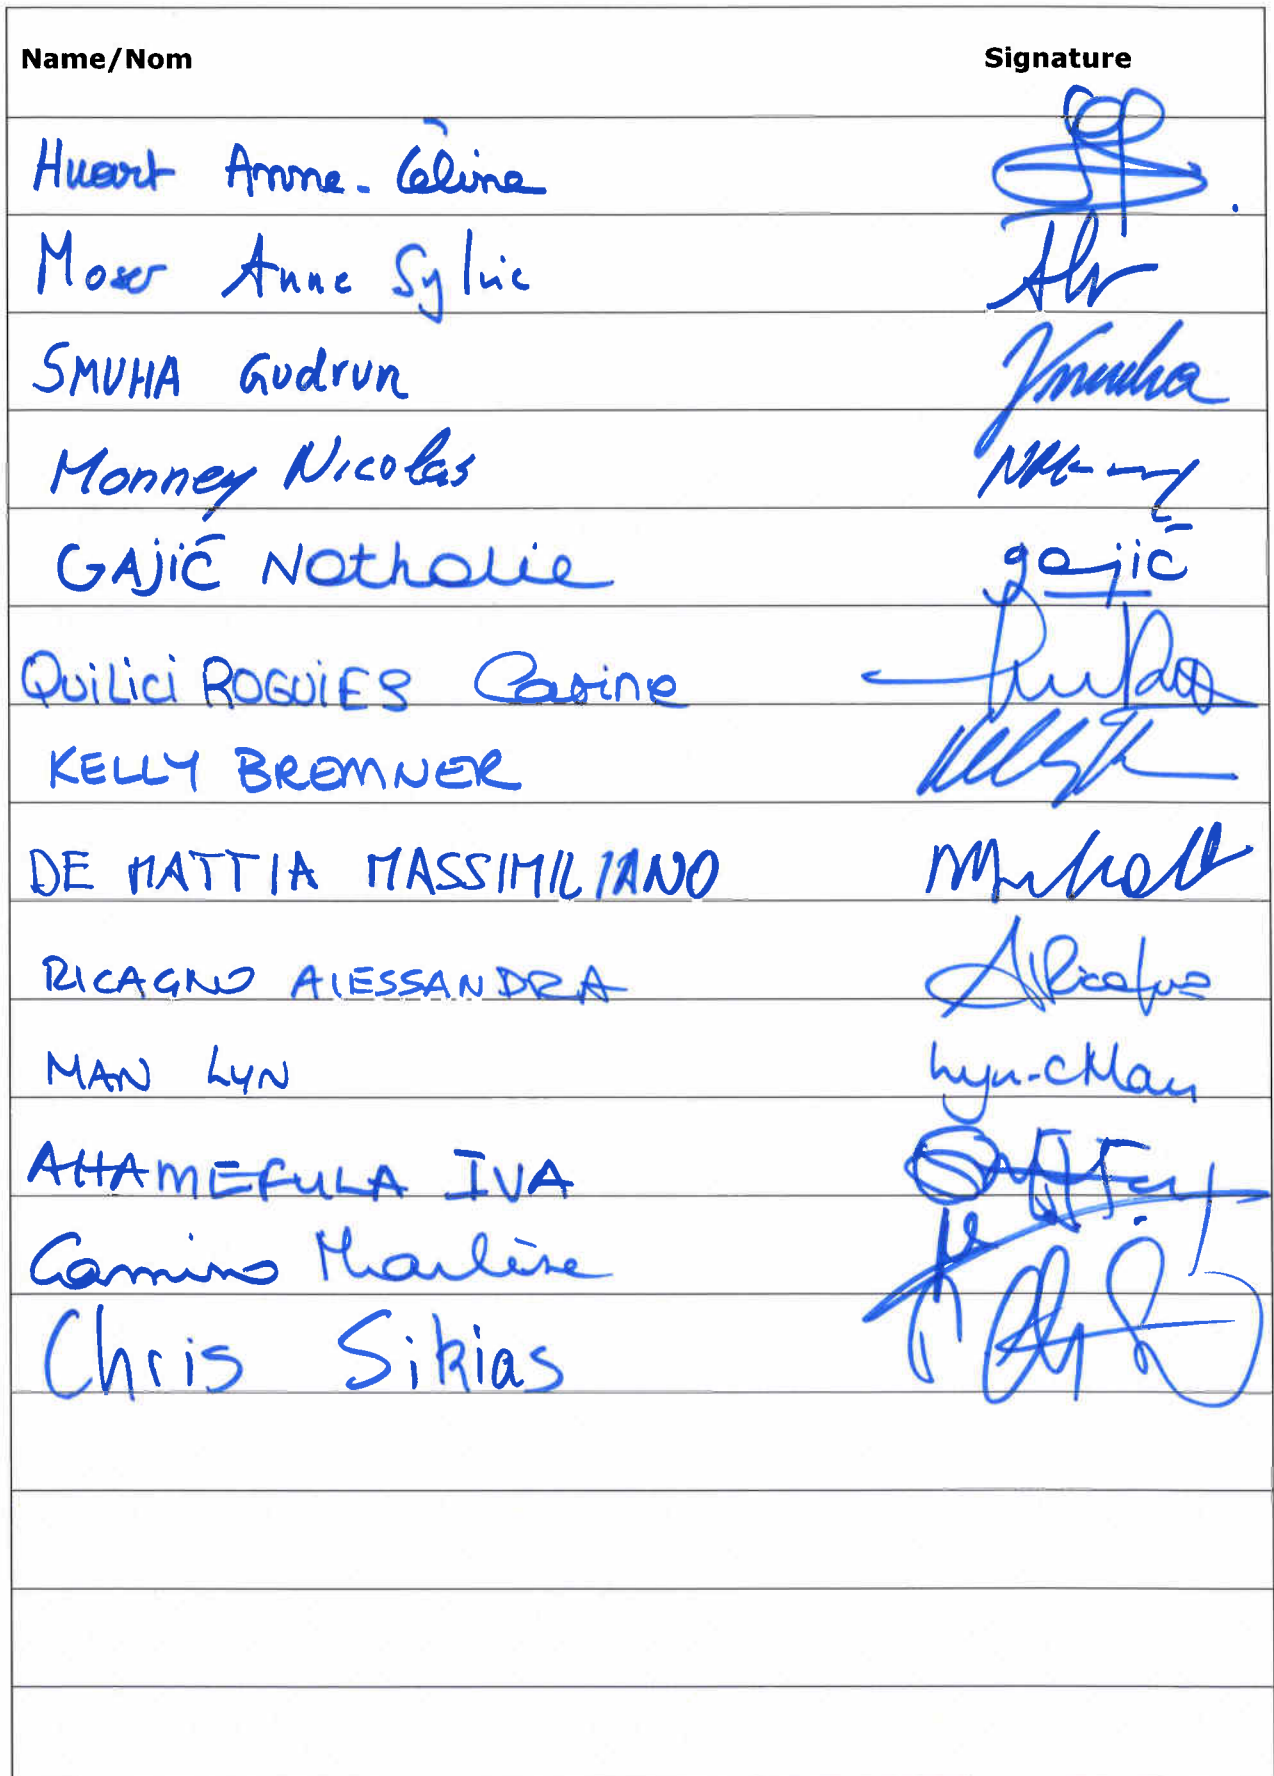 Name/Nom Signature
Huart Anne-Céline
Moser Anne Sylvie
SMUHA Gudrun Smuha
Monney Nicolas
GAJIĆ Nathalie gajić
QUiLiCi ROGUIES Carine
KELLY BREMNER
DE MATTIA MASSIMILIANO
RICAGNO ALESSANDRA ARicagno
MAN LYN Lyn-cMan
AHAMEFULA IVA
Camino Marlène
Chris Sikias